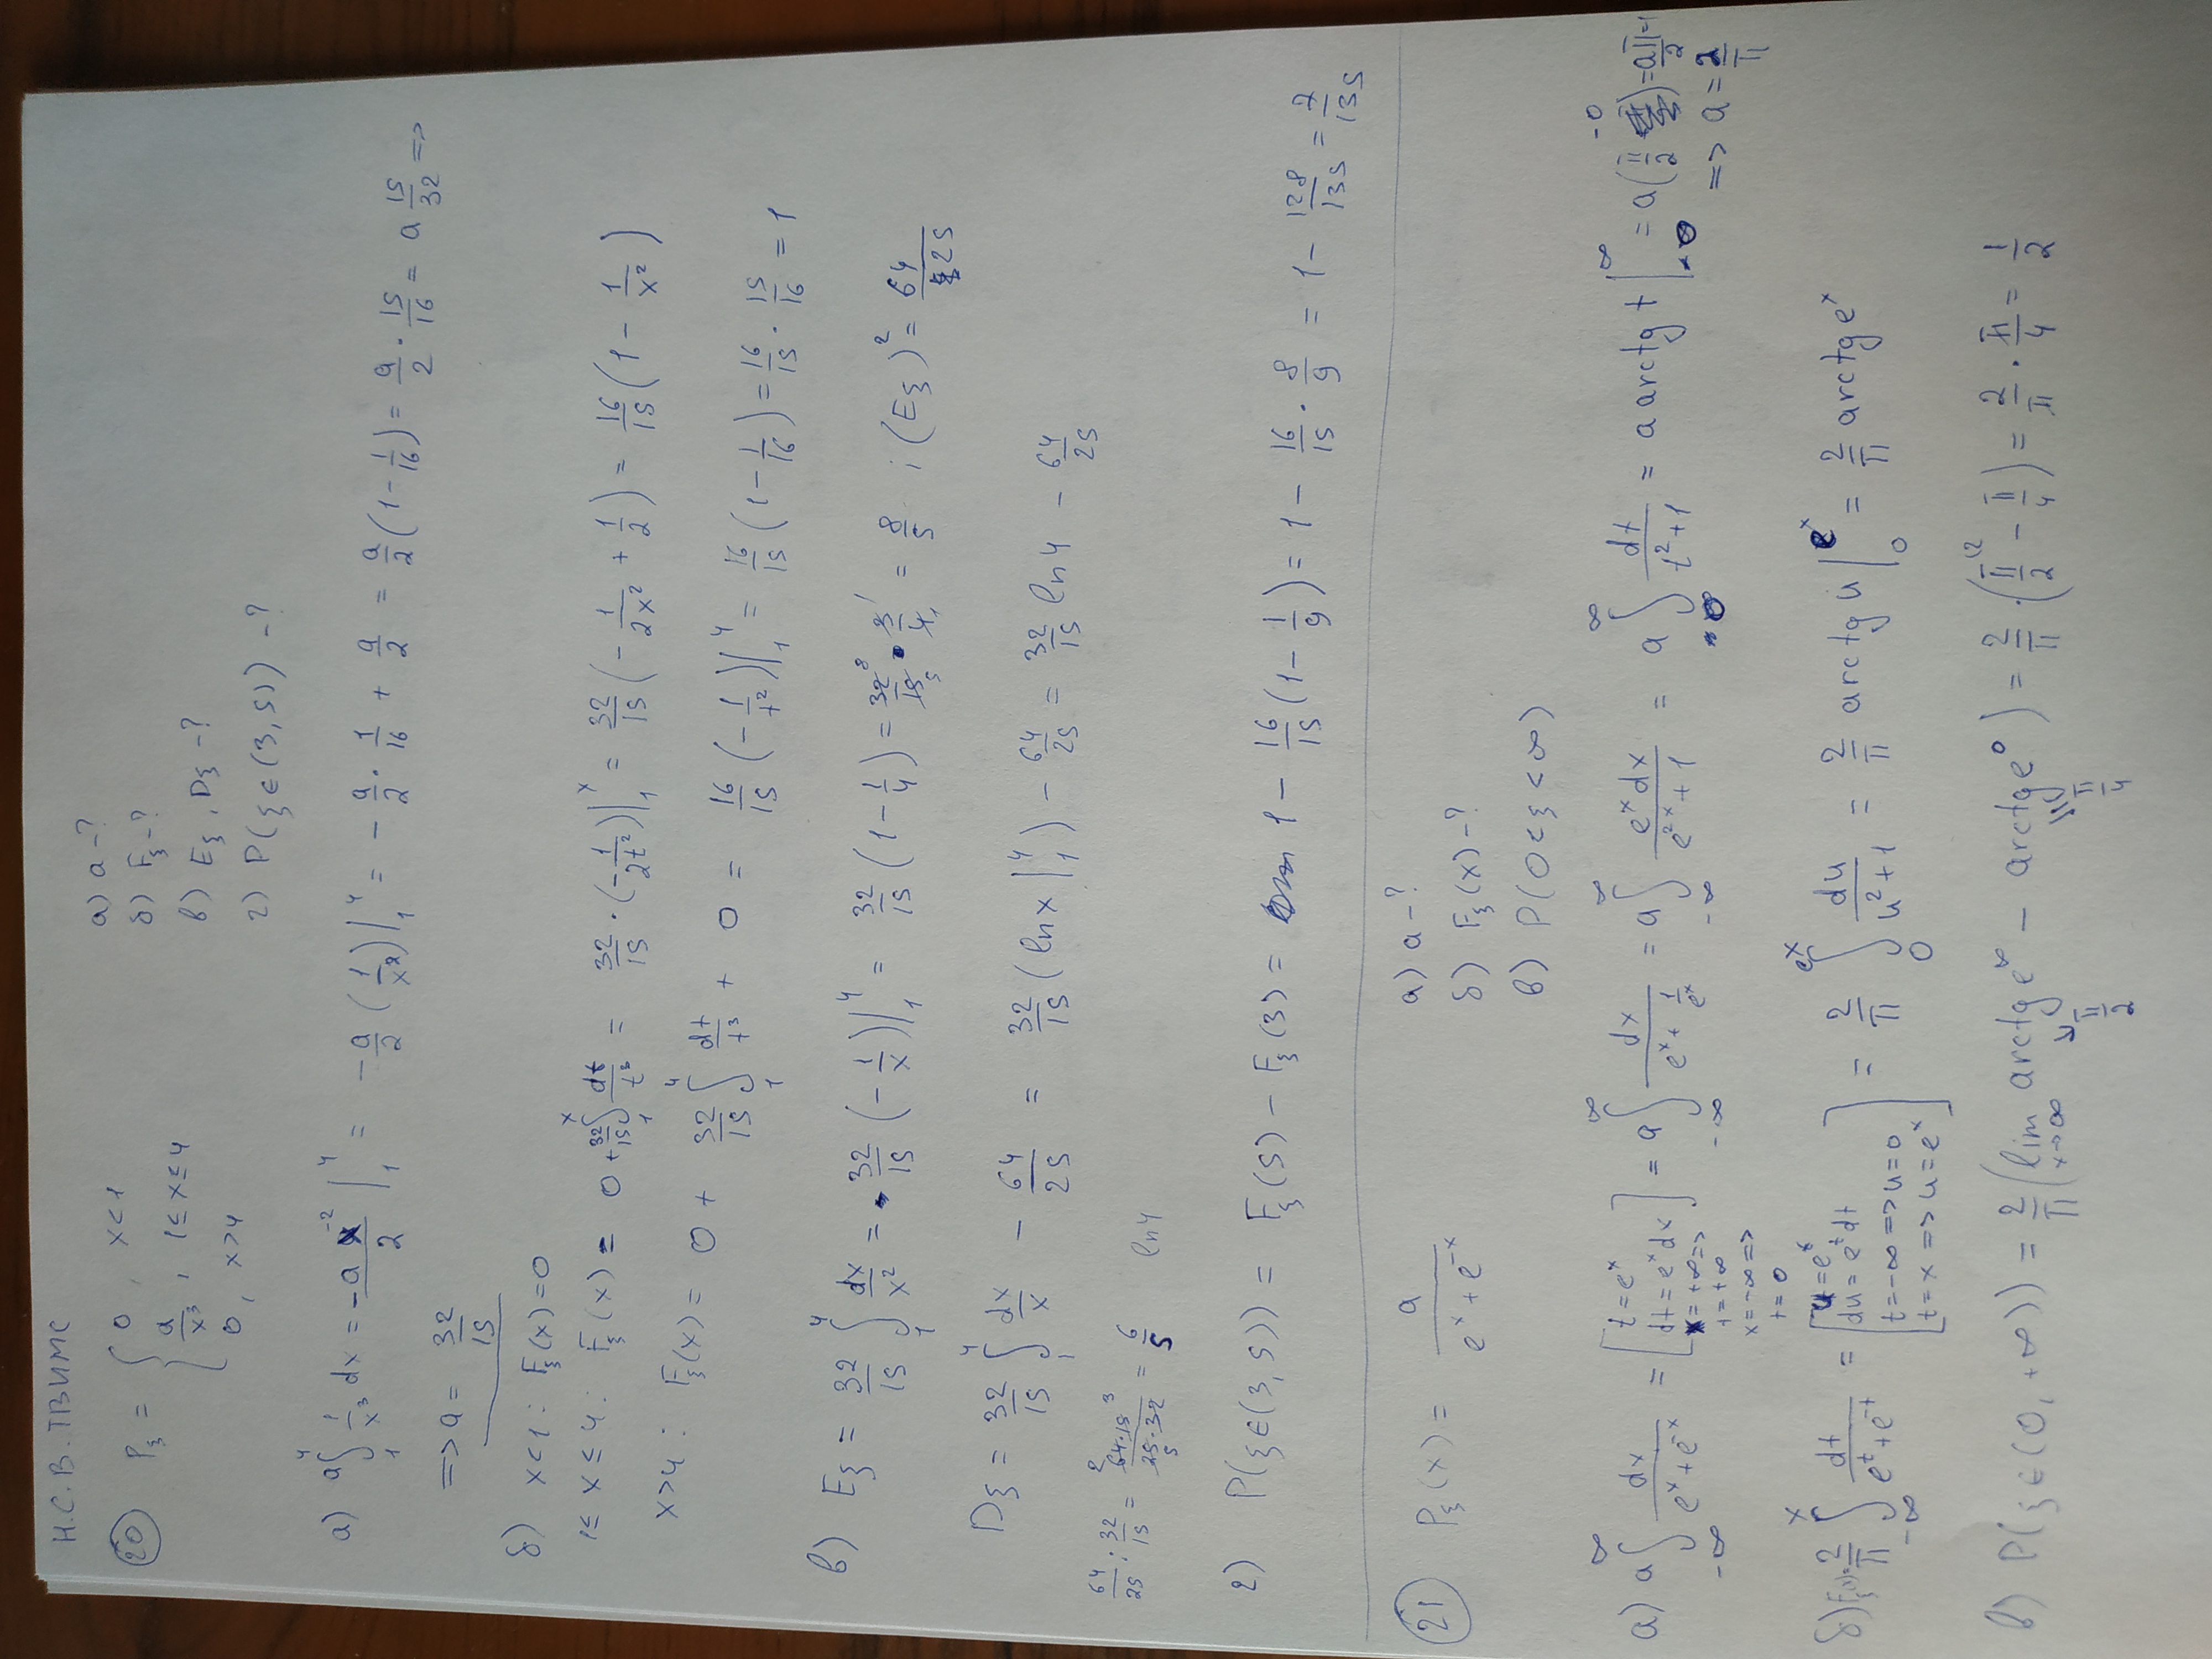 Н.С.В. ТВИМС
20 P_ξ = { 0, x<1
a/x³, 1≤x≤4
0, x>4
а) a-?
б) F_ξ-?
в) E_ξ, D_ξ-?
г) P(ξ∈(3,5)) -?
а) a∫₁⁴ 1/x³ dx = -a x⁻²/2 |₁⁴ = -a/2 (1/x²)|₁⁴ = - a/2 · 1/16 + a/2 = a/2 (1 - 1/16) = a/2 · 15/16 = a 15/32 =>
=> a = 32/15
б) x<1: F_ξ(x)=0
1≤x≤4: F_ξ(x) = 0 + 32/15 ∫₁ˣ dt/t³ = 32/15 · (-1/2t²)|₁ˣ = 32/15 (-1/2x² + 1/2) = 16/15 (1 - 1/x²)
x>4: F_ξ(x) = 0 + 32/15 ∫₁⁴ dt/t³ + 0 = 16/15 (-1/t²)|₁⁴ = 16/15 (1 - 1/16) = 16/15 · 15/16 = 1
в) Eξ = 32/15 ∫₁⁴ dx/x² = 32/15 (-1/x)|₁⁴ = 32/15 (1 - 1/4) = 32⁸/15₅ · 3¹/4₁ = 8/5 ; (Eξ)² = 64/25
Dξ = 32/15 ∫₁⁴ dx/x - 64/25 = 32/15 (ln x |₁⁴) - 64/25 = 32/15 ln4 - 64/25
64/25 : 32/15 = ²64·15³/₅25·32 = 6/5 ln4
г) P(ξ∈(3,5)) = F_ξ(5) - F_ξ(3) = 1 - 16/15 (1 - 1/9) = 1 - 16/15 · 8/9 = 1 - 128/135 = 7/135
21 P_ξ(x) = a/(eˣ+e⁻ˣ)
а) a-?
б) F_ξ(x)-?
в) P(0<ξ<∞)
а) a∫_{-∞}^{∞} dx/(eˣ+e⁻ˣ) = [t=eˣ
dt=eˣdx
x=+∞=>
t=+∞
x=-∞=>
t=0] = a∫_{-∞}^{∞} dx/(eˣ+1/eˣ) = a∫_{-∞}^{∞} eˣdx/(e²ˣ+1) = a∫₀^{∞} dt/(t²+1) = a arctg t |₀^∞ = a(π/2 -0) = aπ/2 =1
=> a = 2/π
б) F_ξ(x)= 2/π ∫_{-∞}^{x} dt/(eᵗ+e⁻ᵗ) = [u=eᵗ
du=eᵗdt
t=-∞=>u=0
t=x=>u=eˣ] = 2/π ∫₀^{eˣ} du/(u²+1) = 2/π arctg u |₀^{eˣ} = 2/π arctg eˣ
в) P(ξ∈(0,+∞)) = 2/π (lim_{x→∞} arctg eˣ - arctg e⁰) = 2/π · (π/2 - π/4) = 2/π · π/4 = 1/2
π/2 π/4